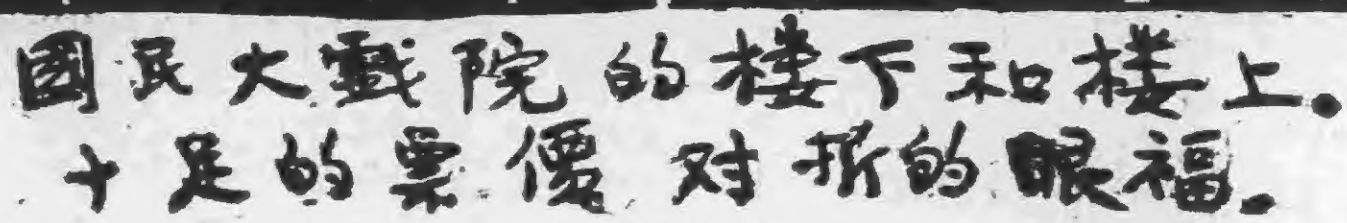 國民大戲院的楼下和楼上。
十足的票價对折的眼福。